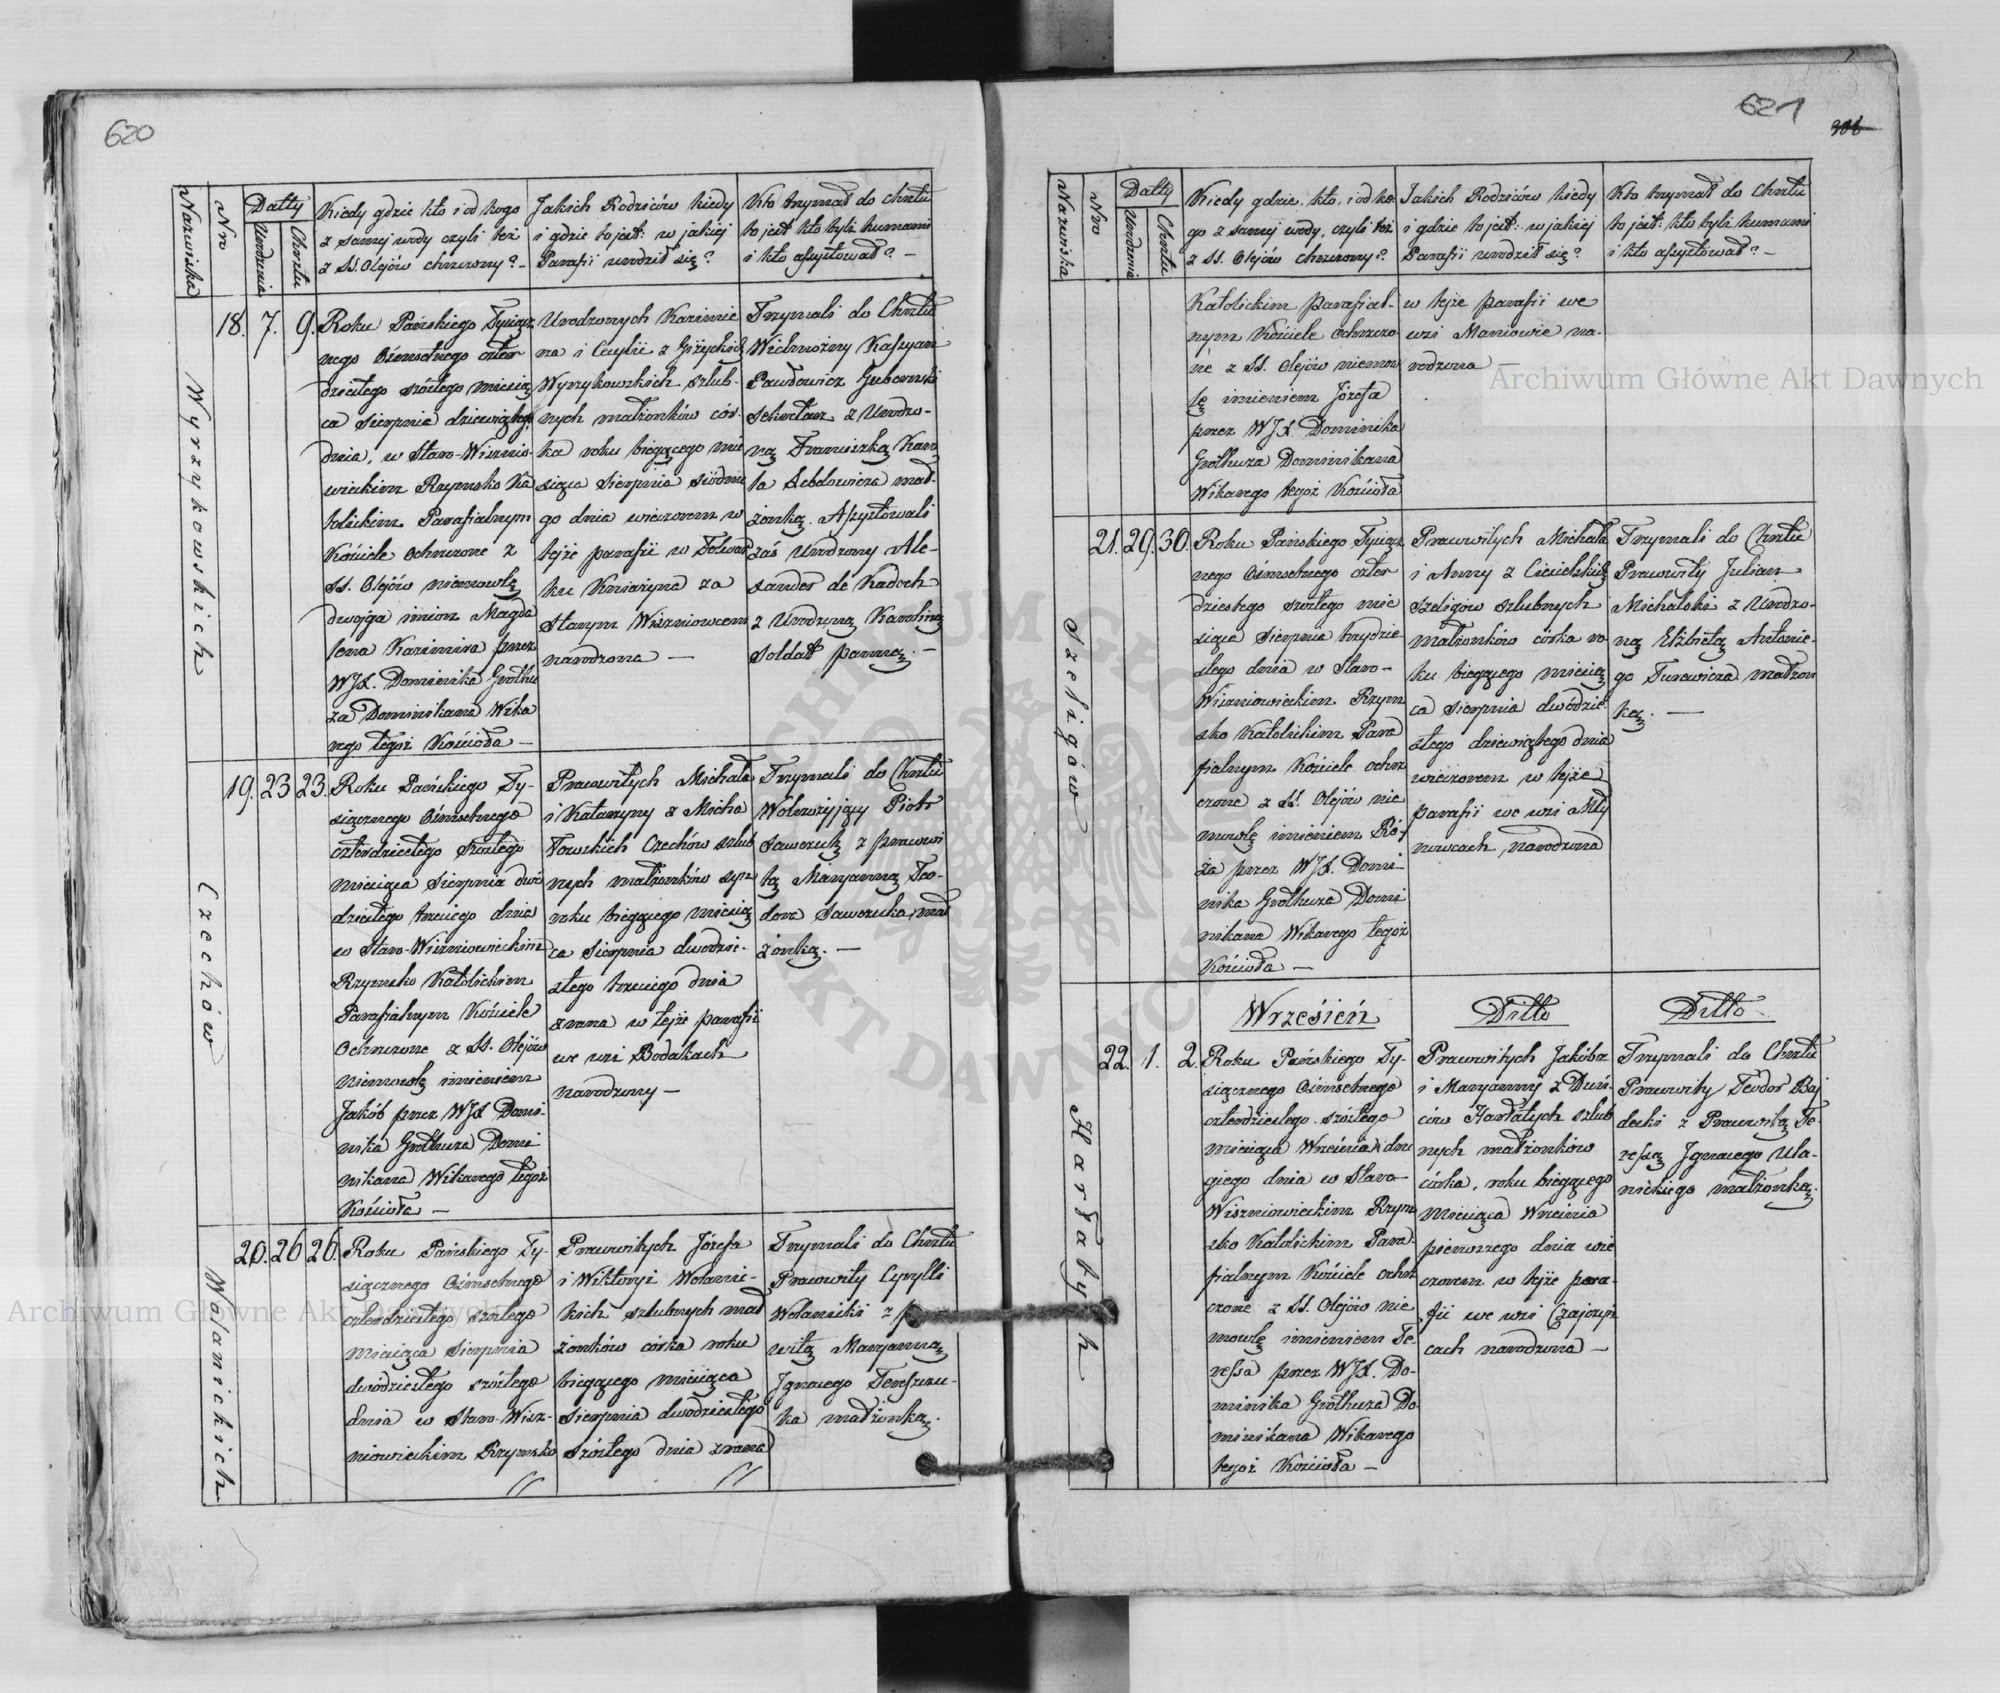 620
Nazwiska
Nro
Datty
Urodzenia
Chrztu
Kiedy gdzie kto i od kogo
z samej wody czyli też
z SS. Olejów chrzczony? –
Jakich Rodziców kiedy
i gdzie to jest: w jakiej
Parafii urodził się?
Kto trzymał do chrztu
to jest kto byli kumami
i kto assystował? –
Wyrzykowskich
18. 7. 9.
Roku Pańskiego Tysiącz
nego Ośmsetnego czter
dziestego szóstego miesią
ca Sierpnia dziewiątego
dnia, w Staro-Wiśnio-
wieckim Rzymsko Ka
tolickim Parafialnym
Kościele ochrzczone z
SS. Olejów niemowlę
dwojga imion Magda
lena Kazimira przez
WJX. Dominika Grothu
za Dominikana Wika
rego tegoż Kościoła –
Urodzonych Kazimie
rza i Cecylii z Giżyckich
Wyrzykowskich szlub-
nych małżonków cór-
ka roku bieżącego mie
siąca Sierpnia siódme
go dnia wieczorem w
tejże parafii w Folwar
ku Kniażyna za
Starym Wiszniowcem
narodzona –
Trzymali do Chrztu
Wielmożny Kassyan
Pawłowicz Guberński
Sekretarz z Urodzo-
ną Franciszką Karo
la Lebdowicza mał-
żonką. Assystowali
zaś Urodzony Ale-
xander de Kadoch
z Urodzoną Karoliną
Soldat panną. –
Czechów
19. 23 23.
Roku Pańskiego Ty-
siącznego Ośmsetnego
czterdziestego szóstego
Miesiąca Sierpnia dwó
dziestego trzeciego dnia
w Staro-Wiszniowieckim
Rzymsko Katolickim
Parafialnym Kościele
Ochrzczone z SS. Olejów
Niemowlę imieniem
Jakób przez WJX Domi-
nika Grothuza Domi
nikana Wikarego tegoż
Kościoła –
Prawowitych Michała
i Katarzyny z Micha
łowskich Czechów szlub
nych małżonków syn
roku bieżącego miesią
ca Sierpnia dwudzie-
stego trzeciego dnia
zrana w tejże parafii
we wsi Bodakach
narodzony –
Trzymali do Chrztu
Wólnożyjący Piotr
Sawczuk z prawowi
tą Maryanną Teo-
dora Sawczuka mał
żonką. –
Walanickich
20. 26 26.
Roku Pańskiego Ty-
siącznego Ośmsetnego
czterdziestego szóstego
Miesiąca Sierpnia
dwódziestego szóstego
dnia w Staro-Wisz-
niowieckim Rzymsko
Prawowitych Józefa
i Wiktoryi Wołanic-
kich szlubnych mał
żonków córka roku
bieżącego miesiąca
Sierpnia dwudziestego
Szóstego dnia zrana
Trzymali do Chrztu
Prawowity Cyrylli
Wołanicki z p
witą Maryanną
Ignacego Tereszczu-
ka małżonką.
621
Nazwiska
Nro
Datty
Urodzenia
Chrztu
Kiedy gdzie, kto, i od ko
go z samej wody, czyli też
z SS. Olejów chrzczony?
Jakich Rodziców kiedy
i gdzie to jest: w jakiej
Parafii urodził się?
Kto trzymał do Chrztu
to jest: kto byli kumami
i kto assystował? –
Katolickim Parafial-
nym Kościele Ochrzczo
né z SS. Olejów niemow
lę imieniem Józefa
przez WJX. Dominika
Grothuza Dominikana
Wikarego tegoż Kościoła
w tejże parafii we
wsi Maniowie na-
rodzona –
Szeligów
21. 29. 30.
Roku Pańskiego Tysiącz
nego Ośmsetnego czter
dziestego szóstego mie
siąca Sierpnia trzydzie-
stego dnia w Staro-
Wiszniowieckim Rzym
sko Katolickim Para
fialnym Kościele ochrz
czone z SS. Olejów nie
mowlę imieniem Ró-
ża przez WJX. Domi
nika Grothuza Domi
nikana Wikarego tegoż
Kościoła –
Prawowitych Michała
i Anny z Cieielskich
Szeligów szlubnych
małżonków córka ro-
ku bieżącego miesią
ca Sierpnia dwódzie-
stego dziewiątego dnia
wieczorem w tejże
parafii we wsi Mły
nowcach narodzona
Trzymali do Chrztu
Prawowity Julian
Michalski z Urodzo-
ną Elżbietą Antonie-
go Turewicza małżon
ką. –
Hardabych
22. 1. 2.
Wrzesień
Roku Pańskiego Ty-
siącznego Ośmsetnego
czterdziestego szóstego
miesiąca Września dru
giego dnia w Staro-
Wiszniowieckim Rzym
sko Katolickim Para-
fialnym Kościele ochrz
czone z SS. Olejów nie
mowlę imieniem Te-
ressa przez WJX. Do-
minika Grothuza Do
minikana Wikarego
tegoż Kościoła –
Ditto
Prawowitych Jakóba
i Maryanny z Duń-
ców Hardatych szlub
nych małżonków
córka, roku bieżącego
Miesiąca Września
pierwszego dnia wie
czorem w tejże para-
fii we wsi Czajczyń
cach narodzona –
Ditto
Trzymali do Chrztu
Prawowity Teodor Baj
decki z Prawowitą Te-
ressą Ignacego Ula-
nickiego małżonką.
Archiwum Główne Akt Dawnych
Archiwum Główne Akt Dawnych